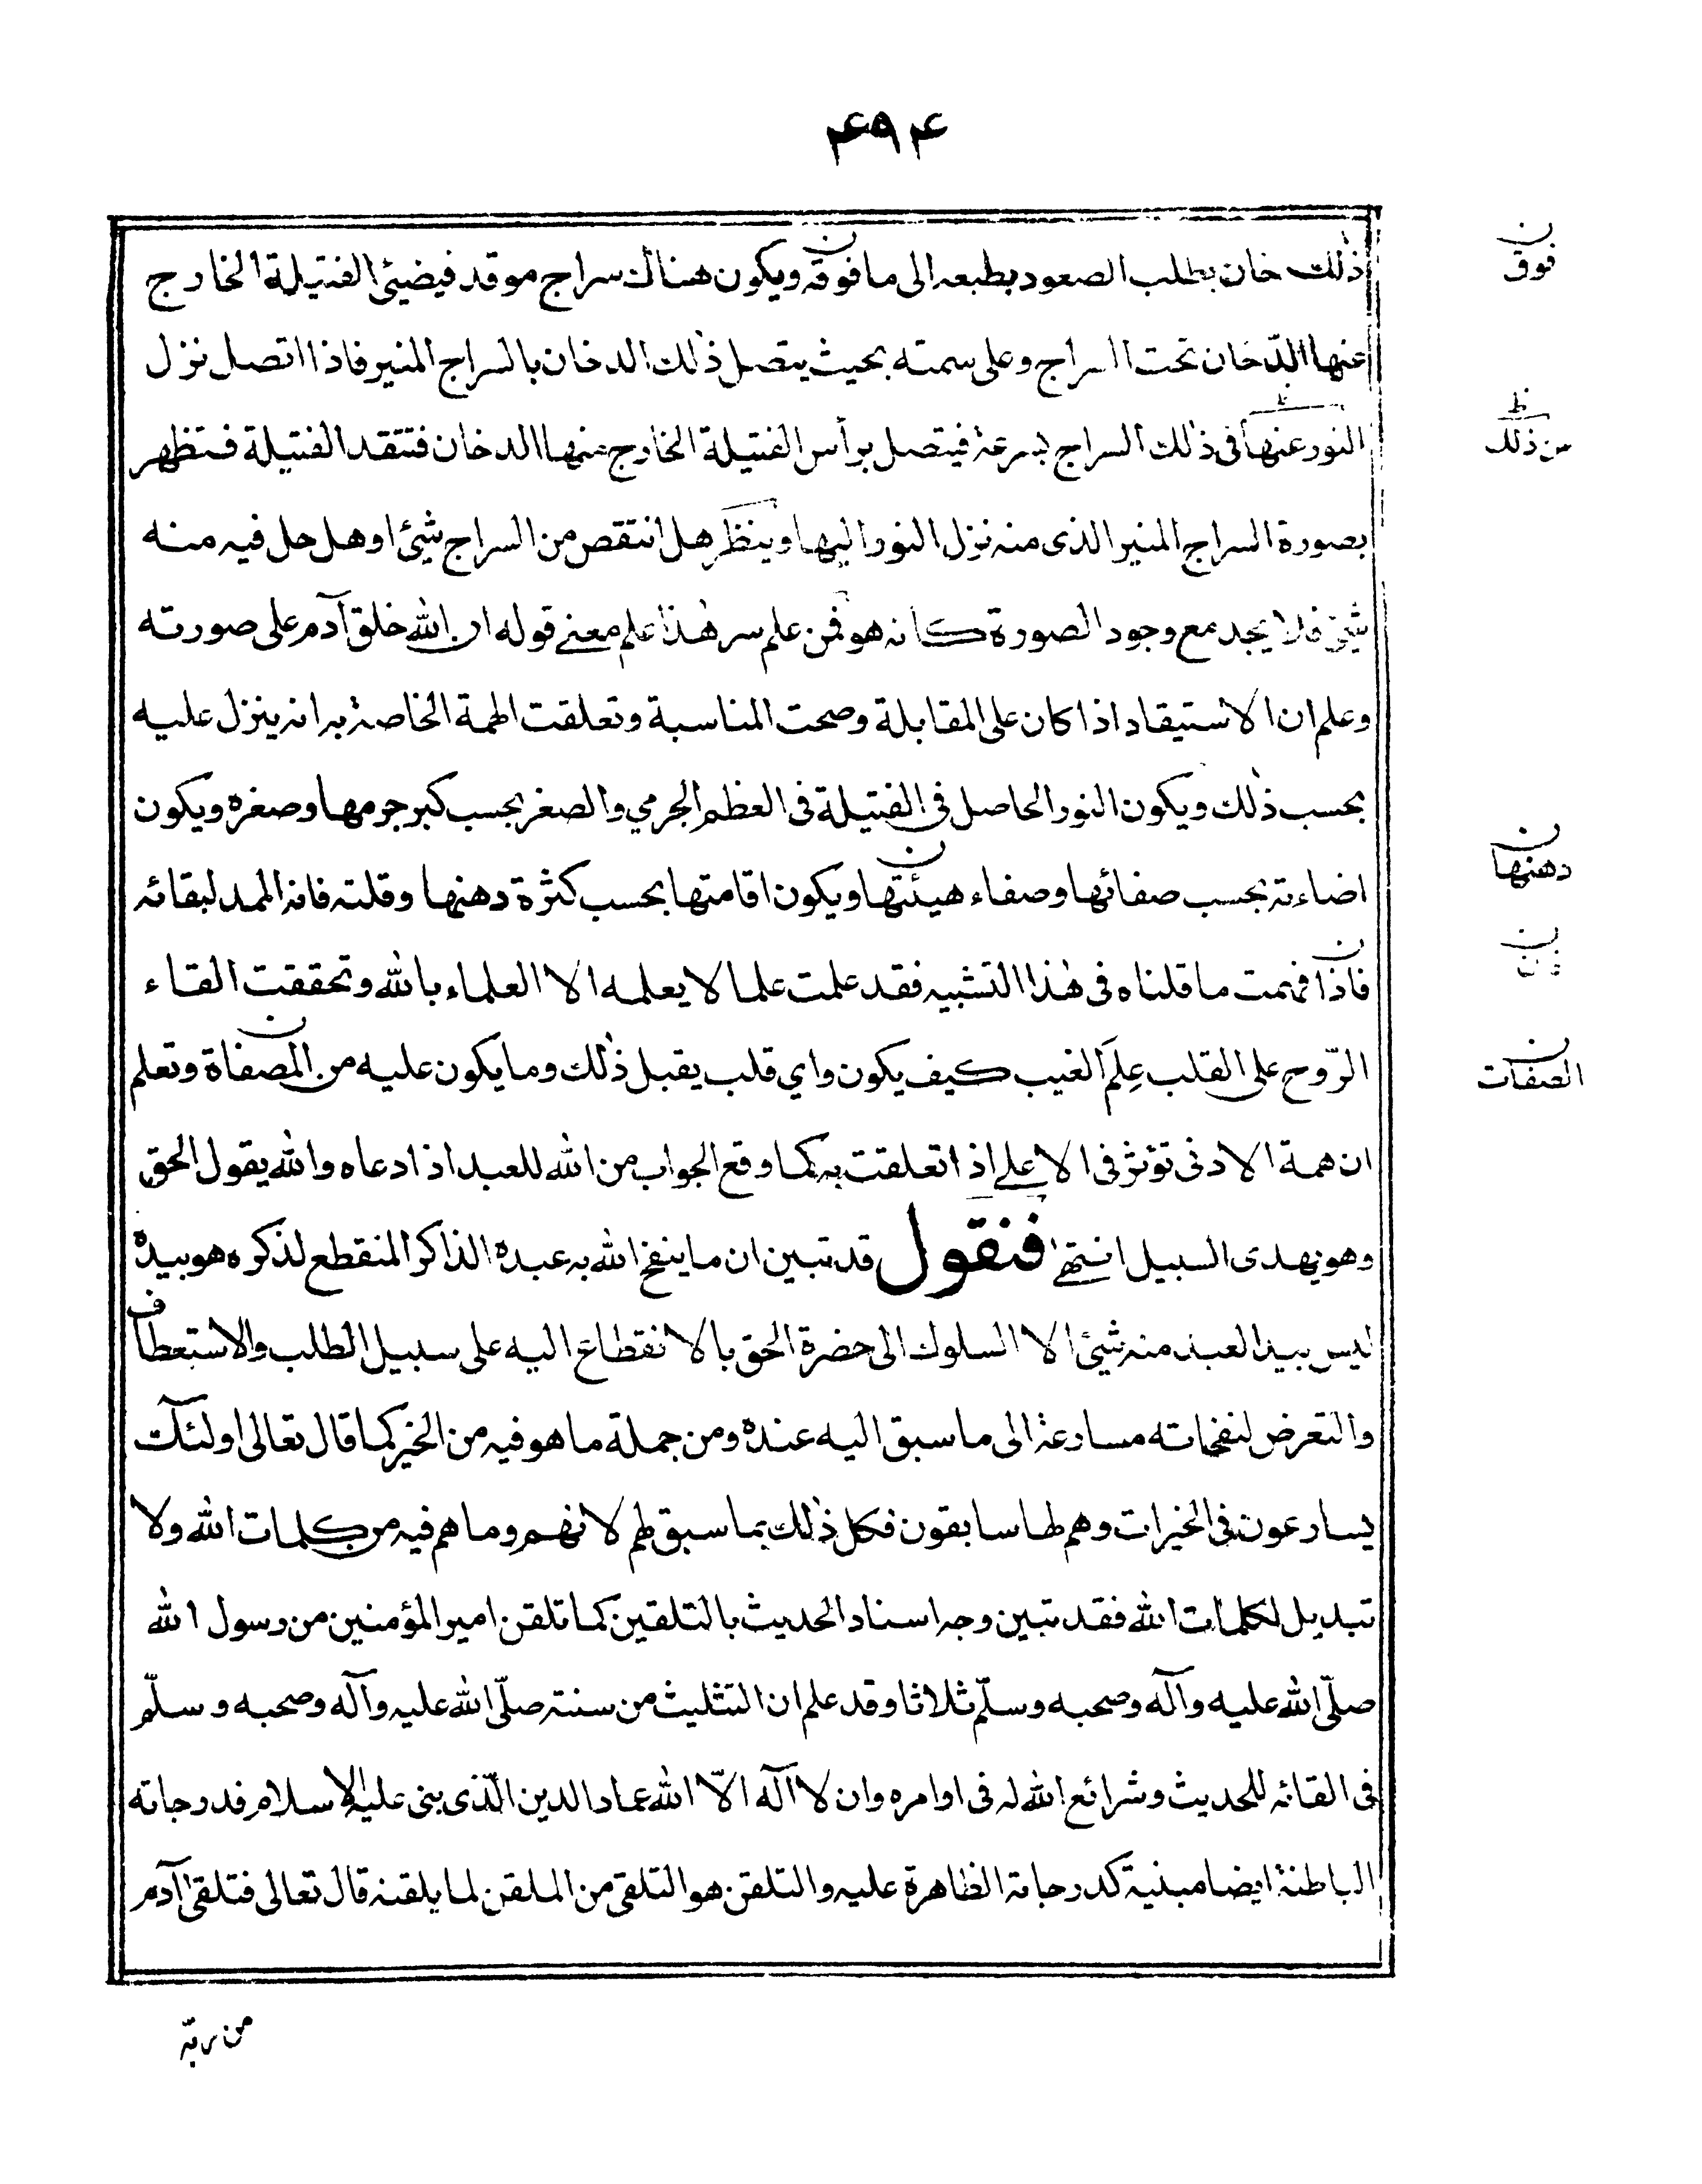 ۴۹۴
ذلك خان يطلب الصعود بطبعه الى ما فوقه ويكون هناك سراج موقد فيضيئ الفتيلة الخارج
عنها الدّخان تحت السراج وعلى سمته بحيث يتصل ذلك الدخان بالسراج المنير فاذا اتصل نزل
النور عنها فى ذلك السراج بسرعة فيتصل برأس الفتيلة الخارج عنها الدخان فتتقد الفتيلة فتظهر
بصورة السراج المنير الذى منه نزل النور اليها وينظر هل انتقص من السراج شيئ او هل حل فيه منه
شيئ فلا يجد مع وجود الصورة كانه هو فمن علم سر هذا علم معنى قوله ان الله خلق آدم على صورته
وعلم ان الاستيقاد اذا كان على المقابلة وصحت المناسبة وتعلقت الهمة الخاصة به انه ينزل عليه
بحسب ذلك ويكون النور الحاصل فى الفتيلة فى العظم الجرمي والصغر بحسب كبر جرمها وصغره ويكون
اضاءته بحسب صفائها وصفاء هيئتها ويكون اقامتها بحسب كثرة دهنها وقلته فانه الممد لبقائه
فاذا فهمت ما قلناه فى هذا التشبيه فقد علمت علما لا يعلمه الا العلماء بالله وتحققت القاء
الرّوح على القلب عِلمَ الغيب كيف يكون واي قلب يقبل ذلك وما يكون عليه من المصفاة وتعلم
ان همة الادنى تؤثر فى الاعلى اذا تعلقت به كما وقع الجواب من الله للعبد اذا دعاه والله يقول الحق
وهو يهدى السبيل انتهى فنقول قد تبين ان ما ينفخ الله به عبده الذاكر المنقطع لذكره هو بيده
ليس بيد العبد منه شيئ الا السلوك الى حضرة الحق بالانقطاع اليه على سبيل الطلب والاستعطاف
والتعرض لنفحاته مسارعة الى ما سبق اليه عنده ومن جملة ما هو فيه من الخير كما قال تعالى اولئك
يسارعون فى الخيرات وهم لها سابقون فكل ذلك بما سبق لهم لانهم وما هم فيه من كلمات الله ولا
تبديل لكلمات الله فقد تبين وجه اسناد الحديث بالتلقين كما تلقن امير المؤمنين من رسول الله
صلّى الله عليه وآله وصحبه وسلّم ثلاثا وقد علم ان التثليث من سنته صلّى الله عليه وآله وصحبه وسلّم
فى القائه للحديث وشرائع الله له فى اوامره وان لا آله الاّ الله عماد الدين الّذى بنى عليه الاسلام فدرجاته
الباطنة ايضا مبنية كدرجاته الظاهرة عليه والتلقن هو التلقى من الملقن لما يلقنه قال تعالى فتلقى آدم
من ربّه
ن
فوق
ظ
من ذلك
ن
دهنها
ن
ن
الصفات